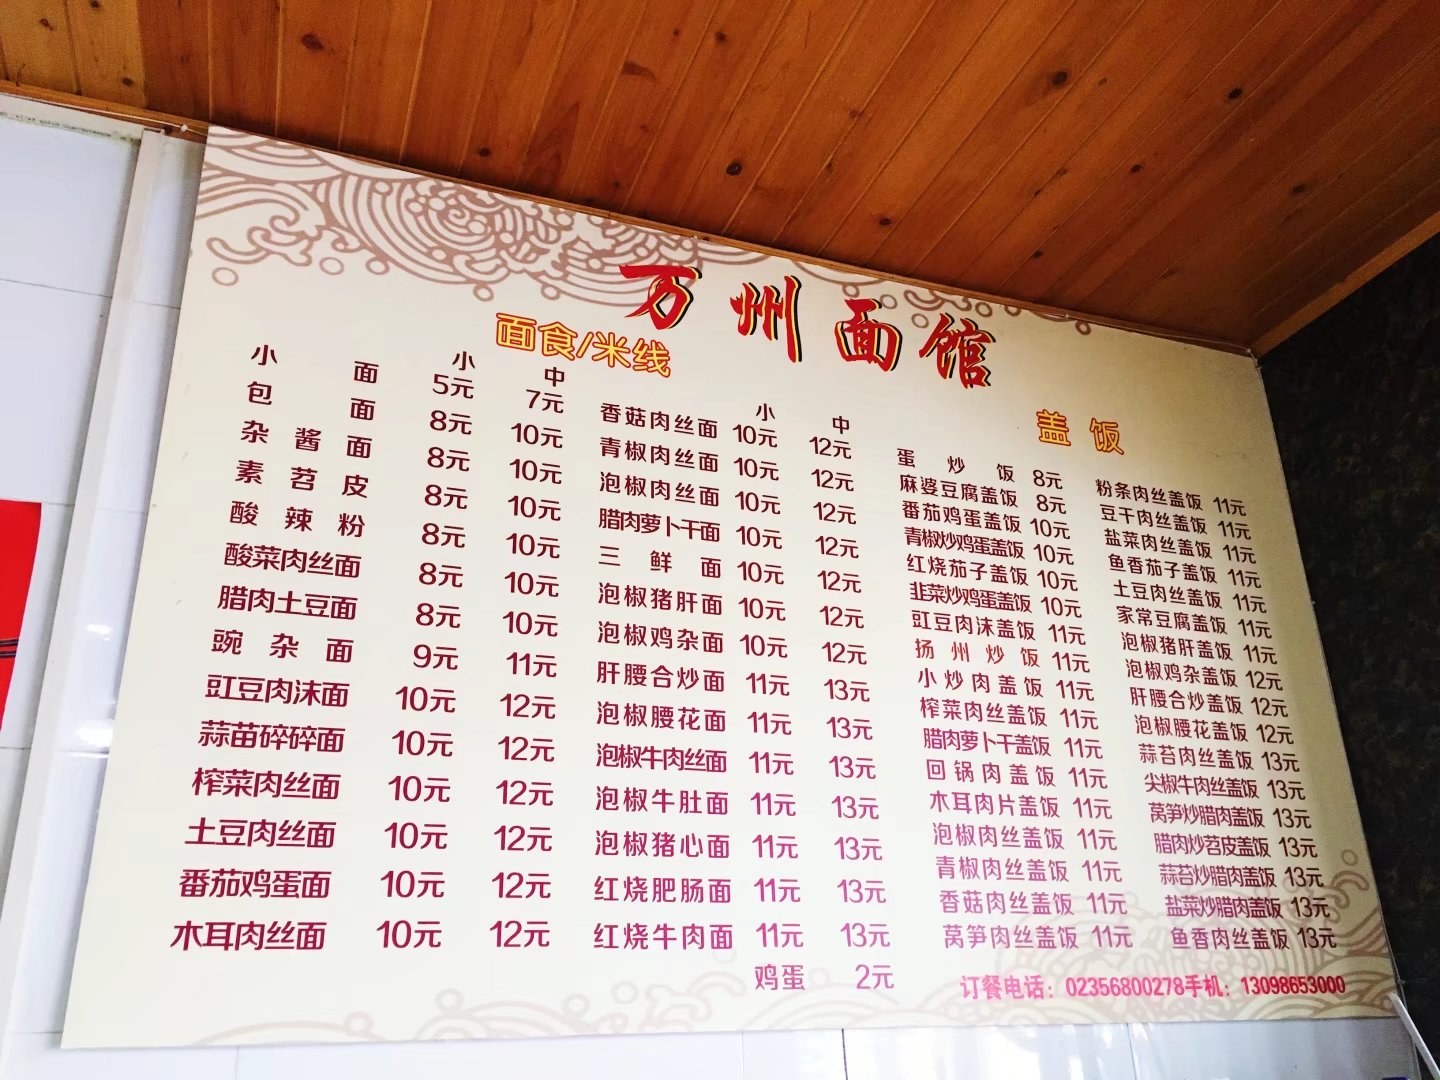 万州面馆
面食/米线
小 中
小面 5元 7元
包面 8元 10元
杂酱面 8元 10元
素苕皮 8元 10元
酸辣粉 8元 10元
酸菜肉丝面 8元 10元
腊肉土豆面 8元 10元
豌杂面 9元 11元
豇豆肉沫面 10元 12元
蒜苗碎碎面 10元 12元
榨菜肉丝面 10元 12元
土豆肉丝面 10元 12元
番茄鸡蛋面 10元 12元
木耳肉丝面 10元 12元
小 中
香菇肉丝面 10元 12元
青椒肉丝面 10元 12元
泡椒肉丝面 10元 12元
腊肉萝卜干面 10元 12元
三鲜面 10元 12元
泡椒猪肝面 10元 12元
泡椒鸡杂面 10元 12元
肝腰合炒面 11元 13元
泡椒腰花面 11元 13元
泡椒牛肉丝面 11元 13元
泡椒牛肚面 11元 13元
泡椒猪心面 11元 13元
红烧肥肠面 11元 13元
红烧牛肉面 11元 13元
鸡蛋 2元
盖饭
蛋炒饭 8元
麻婆豆腐盖饭 8元
番茄鸡蛋盖饭 10元
青椒炒鸡蛋盖饭 10元
红烧茄子盖饭 10元
韭菜炒鸡蛋盖饭 10元
豇豆肉沫盖饭 11元
扬州炒饭 11元
小炒肉盖饭 11元
榨菜肉丝盖饭 11元
腊肉萝卜干盖饭 11元
回锅肉盖饭 11元
木耳肉片盖饭 11元
泡椒肉丝盖饭 11元
青椒肉丝盖饭 11元
香菇肉丝盖饭 11元
莴笋肉丝盖饭 11元
粉条肉丝盖饭 11元
豆干肉丝盖饭 11元
盐菜肉丝盖饭 11元
鱼香茄子盖饭 11元
土豆肉丝盖饭 11元
家常豆腐盖饭 11元
泡椒猪肝盖饭 11元
泡椒鸡杂盖饭 12元
肝腰合炒盖饭 12元
泡椒腰花盖饭 12元
蒜苔肉丝盖饭 13元
尖椒牛肉丝盖饭 13元
莴笋炒腊肉盖饭 13元
腊肉炒苕皮盖饭 13元
蒜苔炒腊肉盖饭 13元
盐菜炒腊肉盖饭 13元
鱼香肉丝盖饭 13元
订餐电话：02356800278手机：13098653000